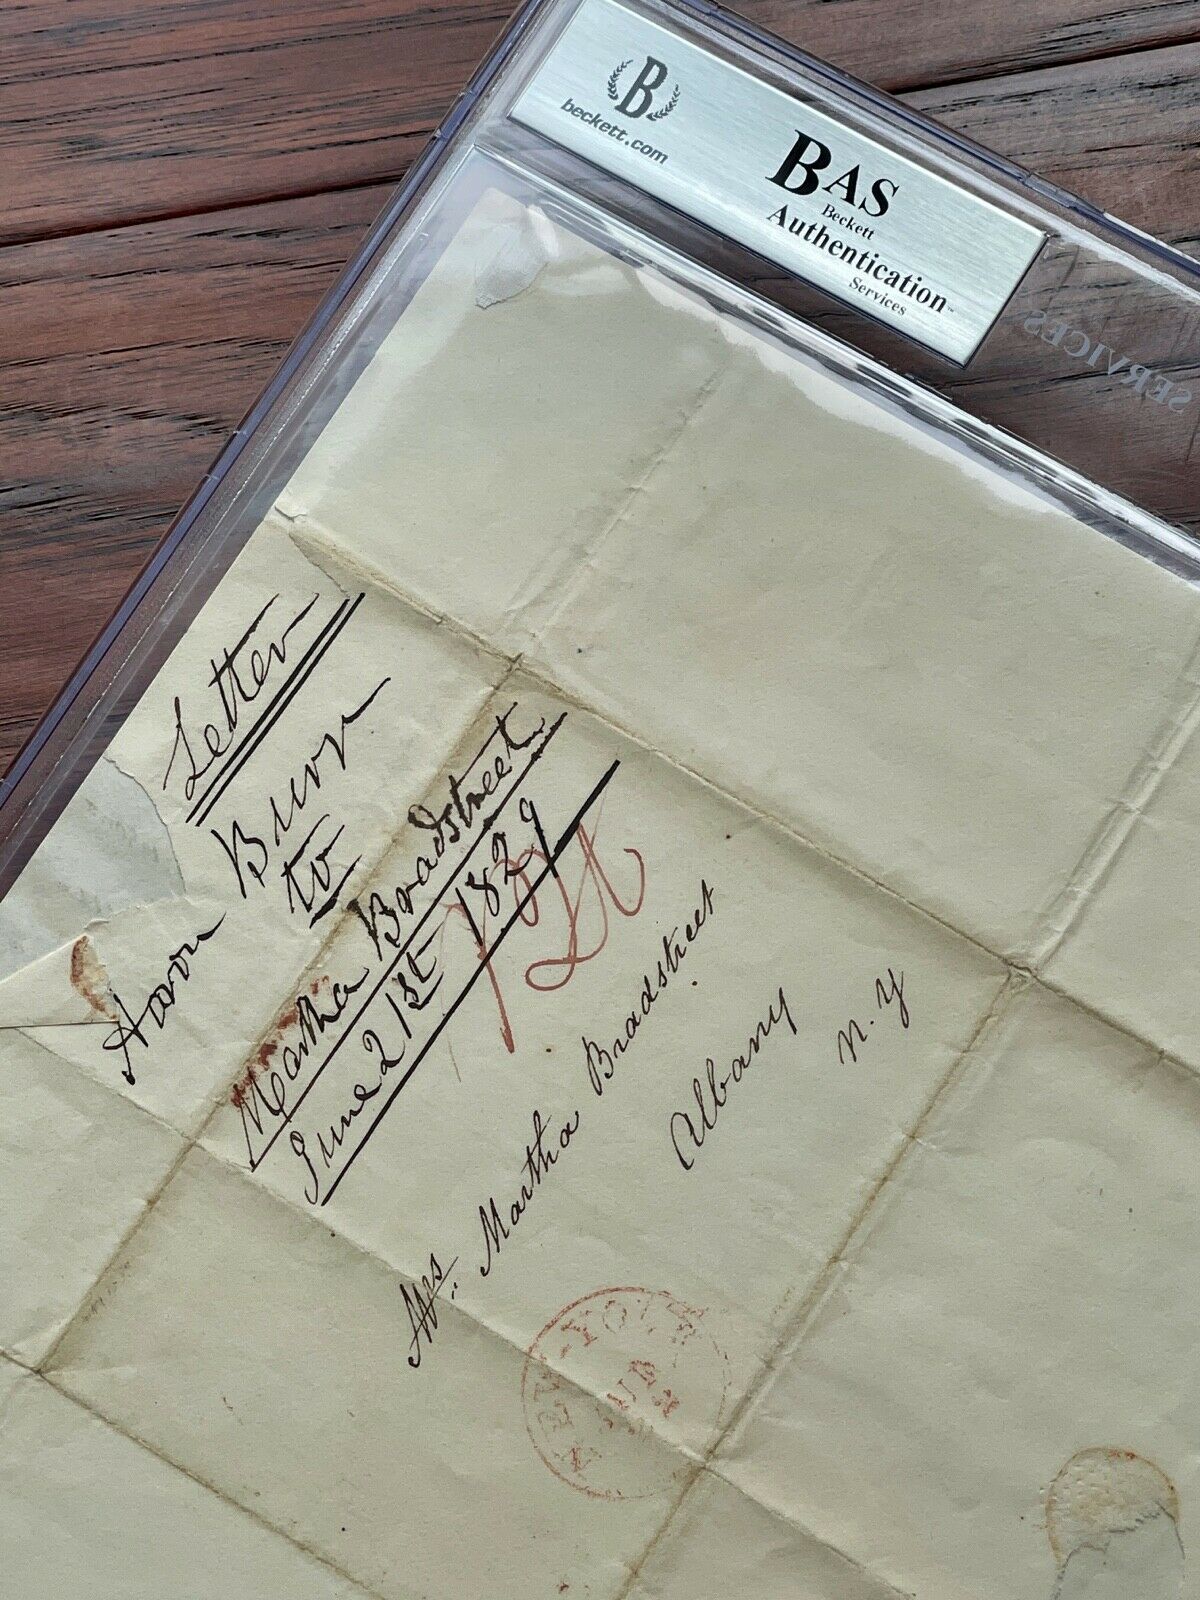 B
beckett.com
BAS
Beckett
Authentication™
Services
SERVICES
Letter
Aaron Burr
to
Martha Bradstreet
June 21st 1829
Mrs. Martha Bradstreet
Albany
N. Y
NEW-YORK
JUN